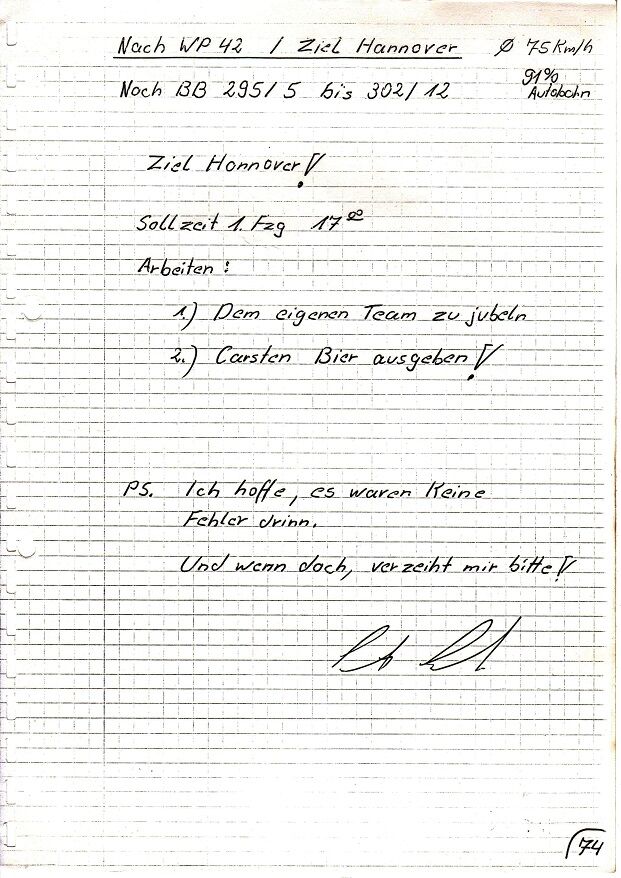 Nach WP 42 / Ziel Hannover ø 75 Km/h
91% Autobahn
Nach BB 295/5 bis 302/12
Ziel Hannover!
Sollzeit 1. Fzg 17⁰⁰
Arbeiten:
1.) Dem eigenen Team zu jubeln
2.) Carsten Bier ausgeben!
PS. Ich hoffe, es waren Keine
Fehler drinn.
Und wenn doch, verzeiht mir bitte!
74